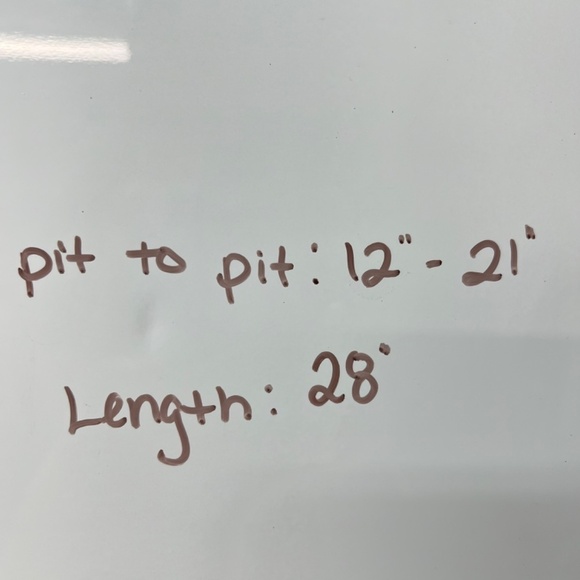 pit to pit: 12" - 21"
Length: 28"